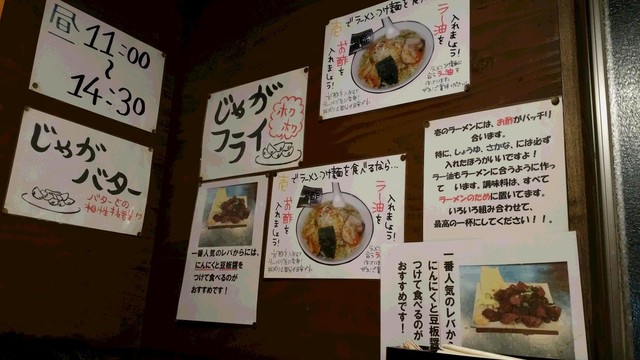 昼 11:00
～
14:30
じゃが
バター
バターとの
相性まちがいナシ
じゃが
フライ
ホク
ホク
壱でラーメンつけ麺を食
ラー油を
入れましょう!
お酢を
入れましょう!
壱でラーメンつけ麺を食べるなら…
ラー油を
入れましょう!
お酢を
入れましょう!
一番人気のレバからには、
にんにくと豆板醤を
つけて食べるのが
おすすめです!
壱のラーメンには、お酢がバッチリ
合います。
特に、しょうゆ、さかな、には必ず
入れたほうがいいですよ!
ラー油もラーメンに合うように作っ
て います。調味料は、すべて
ラーメンのために置いてます。
いろいろ組み合わせて、
最高の一杯にしてください!!。
一番人気のレバか
にんにくと豆板醤
つけて食べるのが
おすすめです!